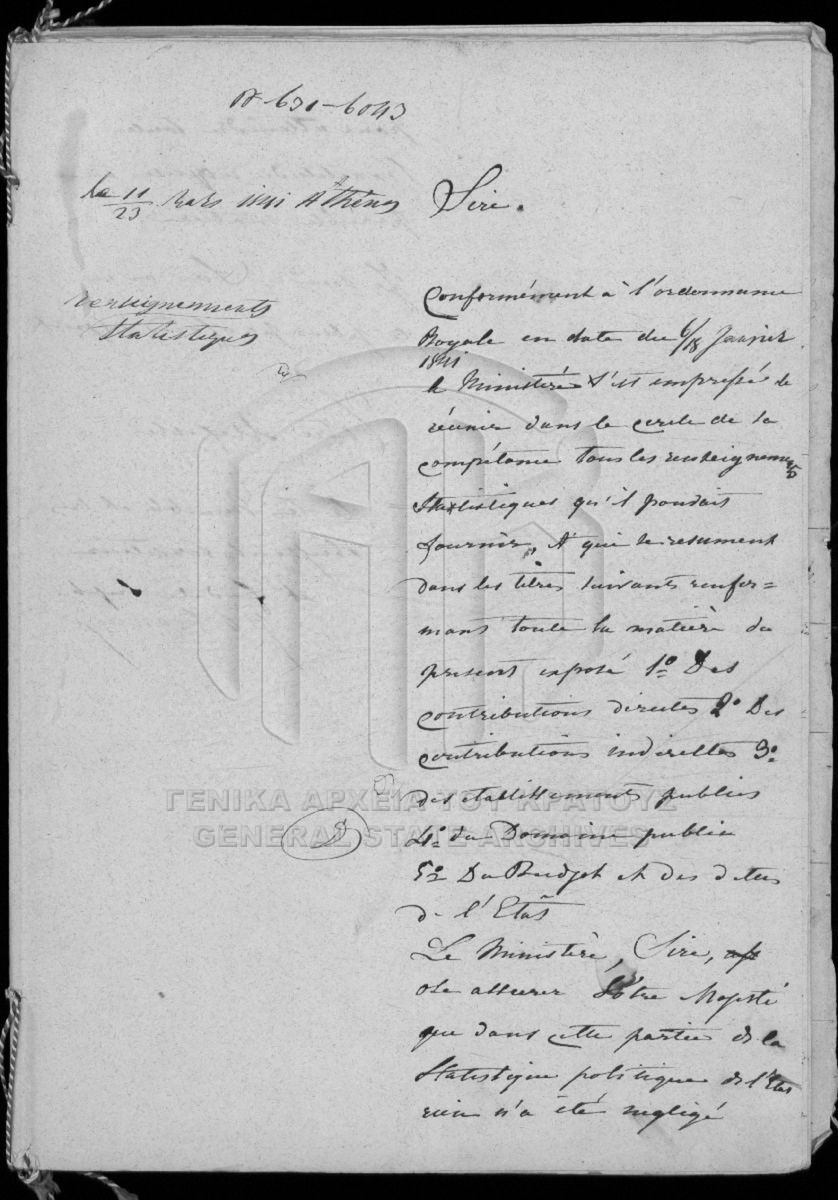 631-6043
le 11/23 Mars 1841 Athènes
Sire.
renseignements
statistiques
Conformément à l'ordonnance
Royale en date du 6/18 Janvier
1841
le Ministère s'est empressé de
réunir dans le cercle de sa
compétance tous les renseignements
Statistiques qu'il pouvait
fournir, et qui se resument
dans les titres suivants renfer=
mans toute la matière du
present exposé 1º Des
contributions directes 2º Des
contributions indirectes 3º
des etablissements publics
4º du Domaine public
5º Du Budget et des dettes
de l'Etat
Le Ministère, Sire,
ose assurer Vôtre Majesté
que dans cette partie de la
Statistique politique de l'Etat
rien n'a été negligé
ΓΕΝΙΚΑ ΑΡΧΕΙΑ ΤΟΥ ΚΡΑΤΟΥΣ
GENERAL STATE ARCHIVES